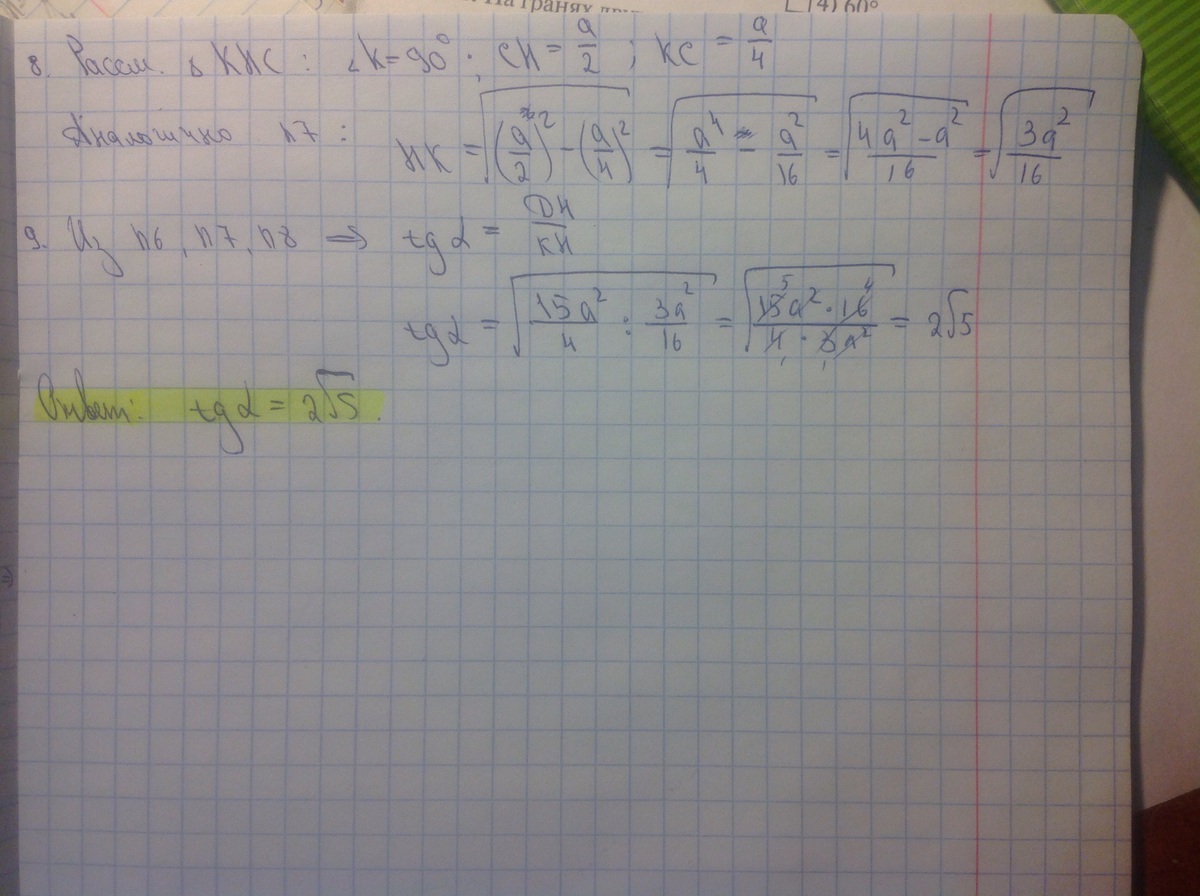 На гранях
(4) 60°
8. Рассм. Δ КНС : ∠K=90° ; CH = a/2 ; KC = a/4
Аналогично п7 : HK = √((a/2)² − (a/4)²) = √(a⁴/4 − a²/16) = √((4a² − a²)/16) = √(3a²/16)
9. Из п6, п7, п8 ⇒ tg α = DH/KH
tg α = √(15a²/4 : 3a²/16) = √((15a² · 16)/(4 · 3a²)) = 2√5
5 4
Ответ: tg α = 2√5.